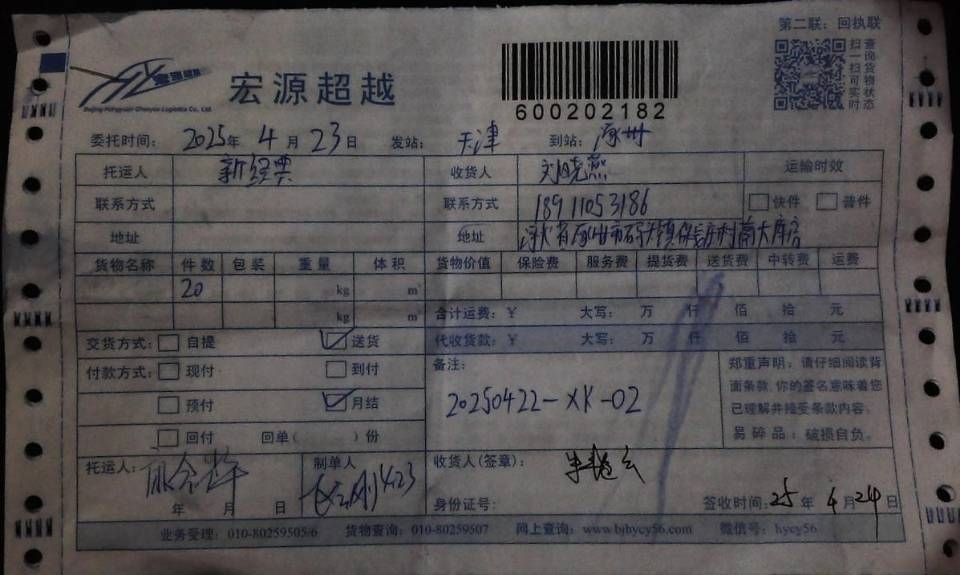 第二联：回执联
宏源超越
Beijing Hongyuan Chaoyue Logistics Co., Ltd.
600202182
查询货物状态
扫一扫可实时
委托时间：2025年 4 月 23 日 发站：天津 到站：涿州
托运人 新经典 收货人 刘晓燕 运输时效
联系方式 联系方式 18911053186 快件 普件
地址 地址 河北省涿州市码头镇
货物名称 件数 包装 重量 体积 货物价值 保险费 服务费 提货费 送货费 中转费 运费
20 kg m³
kg m³
合计运费：￥ 大写： 万 仟 佰 拾 元
代收货款：￥ 大写： 万 仟 佰 拾 元
交货方式： 自提 送货
付款方式： 现付 到付
预付 月结
回付 回单（ ）份
备注：
20250422-XK-02
郑重声明：请仔细阅读背
面条款，你的签名意味着您
已理解并接受条款内容。
易碎品：破损自负。
托运人： 制单人 4.23 收货人(签章)：
年 月 日 身份证号： 签收时间：25 年 4 月 24 日
业务受理：010-80259505/6 货物查询：010-80259507 网上查询：www.bjhycy56.com 微信号：hycy56